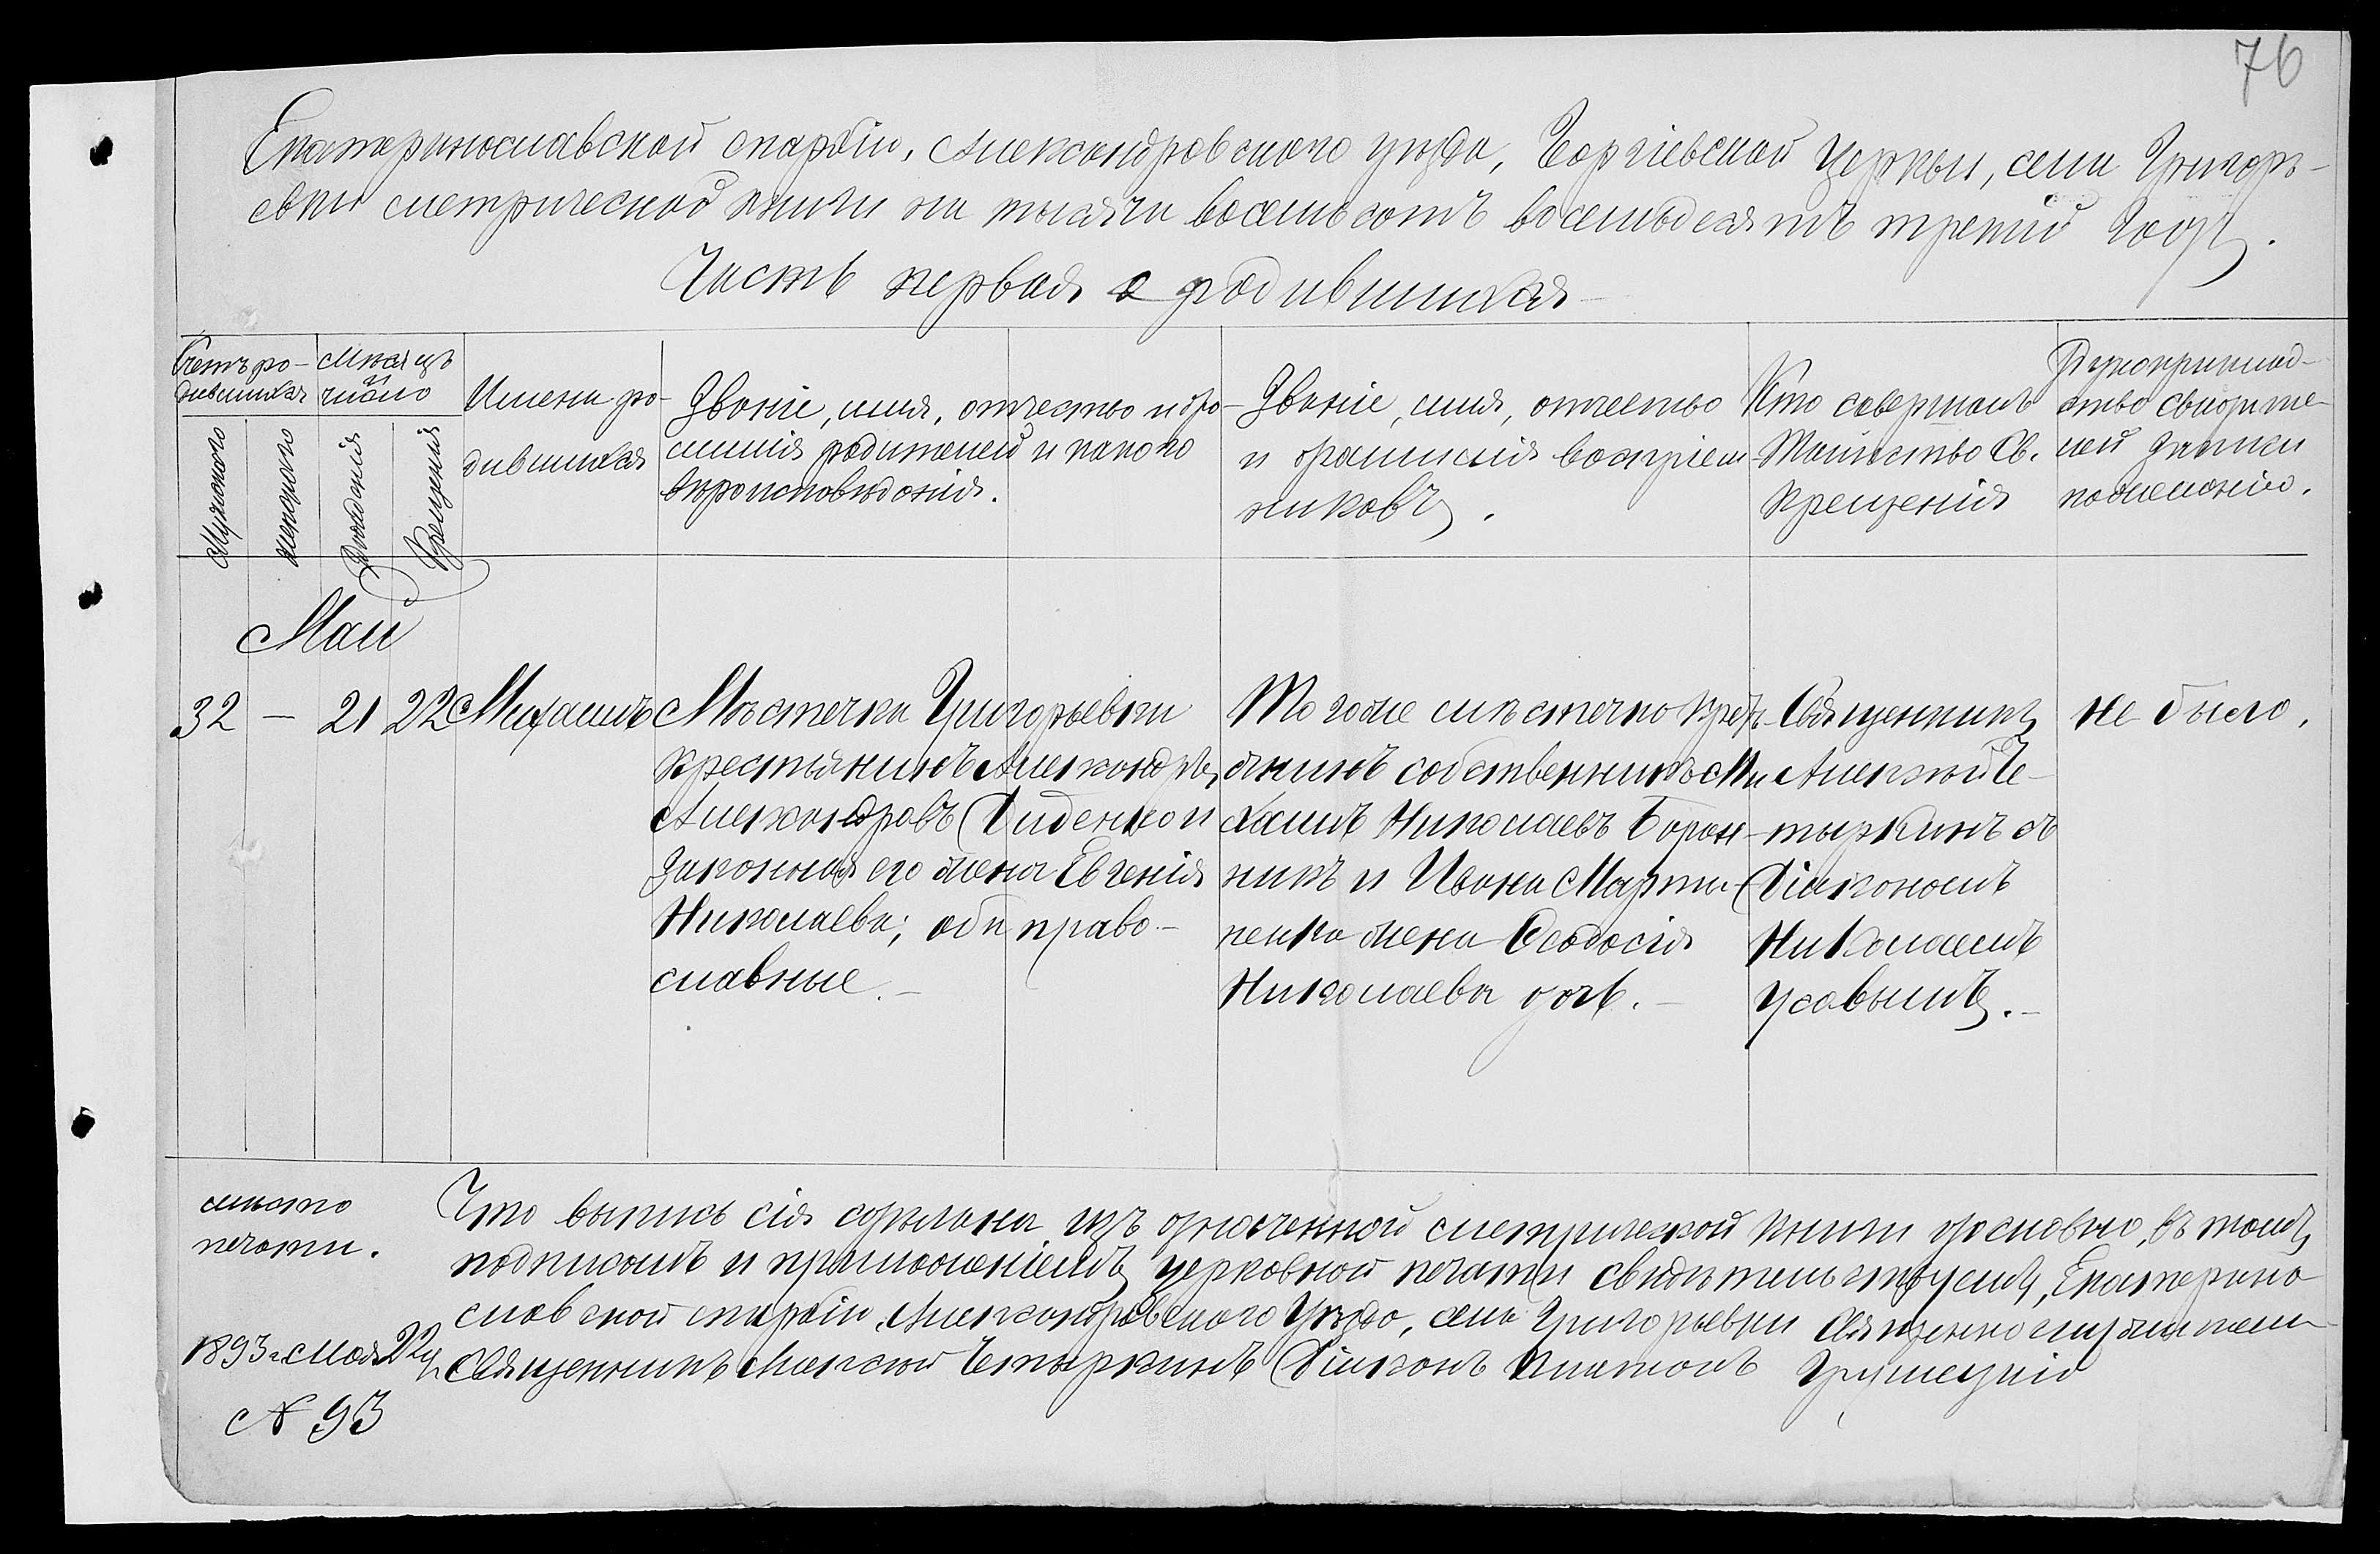 76
Екатеринославской епархіи, Александровскаго уѣзда, Георгіевской церкви, села Григорь-
евки метрической книги на тысяча восемьсотъ восемьдесятъ третій годъ.
Часть первая о родившихся
Счетъ ро-
дившихся
Мужскаго
женскаго
Мѣсяцъ
и
число
Рожденія
Крещенія
Имена ро-
дившихся
Званіе, имя, отчество и фа-
милія родителей и какого
вѣроисповѣданія.
Званіе, имя, отчество
и фамилія воспріем-
никовъ.
Кто совершалъ
Таинство Св.
Крещенія
Рукоприклад-
ство свидѣте-
лей записи
по желанію.
Май
32 — 21 22 Михаилъ
Мѣстечка Григорьевки
крестьянинъ Александръ
Александровъ Диденко и
законная его жена Евгенія
Николаева; оба право-
славные. —
Того же мѣстечка крестъ-
янинъ собственникъ Ми
хаилъ Николаевъ Боран-
никъ и Ивана Марты-
ненка жена Ѳеодосія
Николаева дочь. —
Священникъ
Алексѣй Че-
тыркинъ съ
Діакономъ
Николаемъ
Усовымъ. —
Не было.
мѣсто
печати.
Что выпись сія сдѣлана изъ означенной метрической книги дословно, въ томъ
подписомъ и приложеніемъ церковной печати свидѣтельствуемъ, Екатерино
славской епархіи, Александровскаго Уѣзда, села Григорьевки Священнослужители
1893 г. Мая 22 д.
Священникъ Алексѣй Четыркинъ Діаконъ Платонъ Грушецкій
№ 93